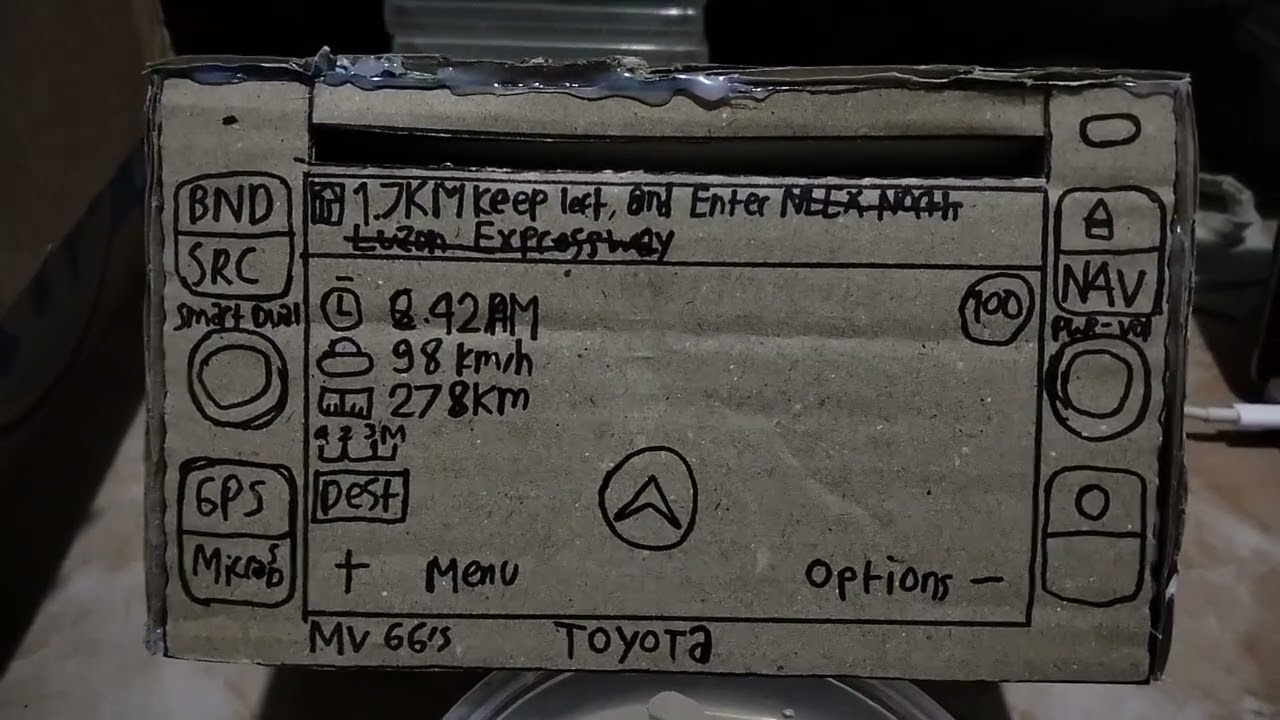 BND
SRC
Smart Dial
GPS
Micro SD
1.7KM Keep left, and Enter NLEX North
Luzon Expressway
8.42AM
98 km/h
278km
1 2 3M
Dest
+ Menu Options -
100
NAV
PWR-VOL
MV 66's TOYOTA